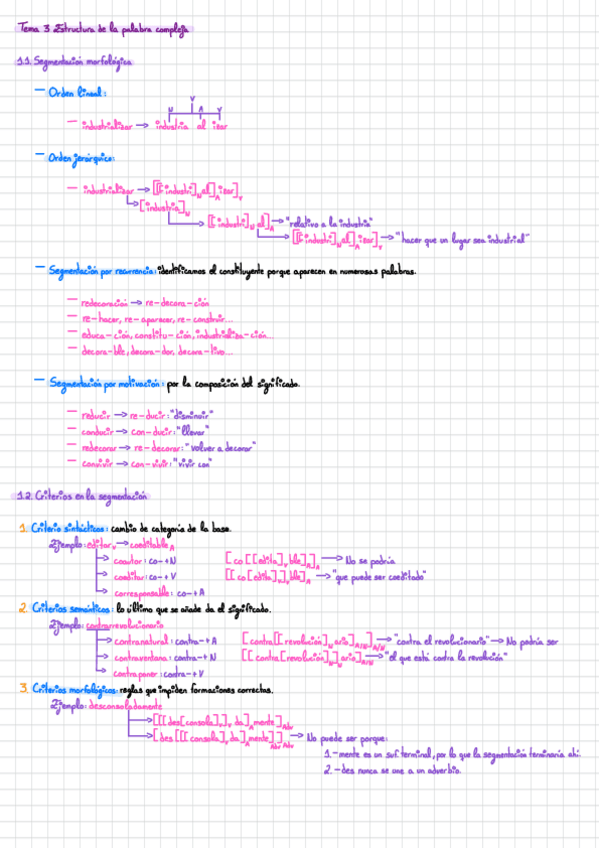 Tema 3 Estructura de la palabra compleja
1.1. Segmentación morfológica
— Orden lineal:
V
N A V
— industrializar → industria al izar
— Orden jerárquico:
— industrializar → [[[industri]N al]A izar]V
[industria]N
[[industri]N al]A → "relativo a la industria"
[[[industri]N al]A izar]V → "hacer que un lugar sea industrial"
— Segmentación por recurrencia: identificamos el constituyente porque aparecen en numerosas palabras.
— redecoración → re-decora-ción
— re-hacer, re-aparecer, re-construir...
— educa-ción, constitu-ción, industrializa-ción...
— decora-ble, decora-dor, decora-tivo...
— Segmentación por motivación: por la composición del significado.
— reducir → re-ducir: "disminuir"
— conducir → con-ducir: "llevar"
— redecorar → re-decorar: "volver a decorar"
— convivir → con-vivir: "vivir con"
1.2. Criterios en la segmentación
1. Criterio sintáctico: cambio de categoría de la base.
Ejemplo: editorV → coeditableA
coautor: co-+N [co[[edita]V ble]A]A → No se podría
coeditar: co-+V [[co[edita]V]V ble]A → "que puede ser coeditado"
corresponsable: co-+A
2. Criterios semánticos: lo último que se añade da el significado.
Ejemplo: contrarrevolucionario
contranatural: contra-+A [contra[[revolución]N ario]A/N]A/N → "contra el revolucionario" → No podría ser
contraventana: contra-+N [[contra[revolución]N]N ario]A/N → "el que está contra la revolución"
contraponer: contra-+V
3. Criterios morfológicos: reglas que impiden formaciones correctas.
Ejemplo: desconsoladamente
[[[des[consola]V]V da]A mente]Adv
[des[[[consola]V da]A mente]Adv]Adv → No puede ser porque:
1.-mente es un suf. terminal, por lo que la segmentación terminaría ahí.
2.-des nunca se une a un adverbio.